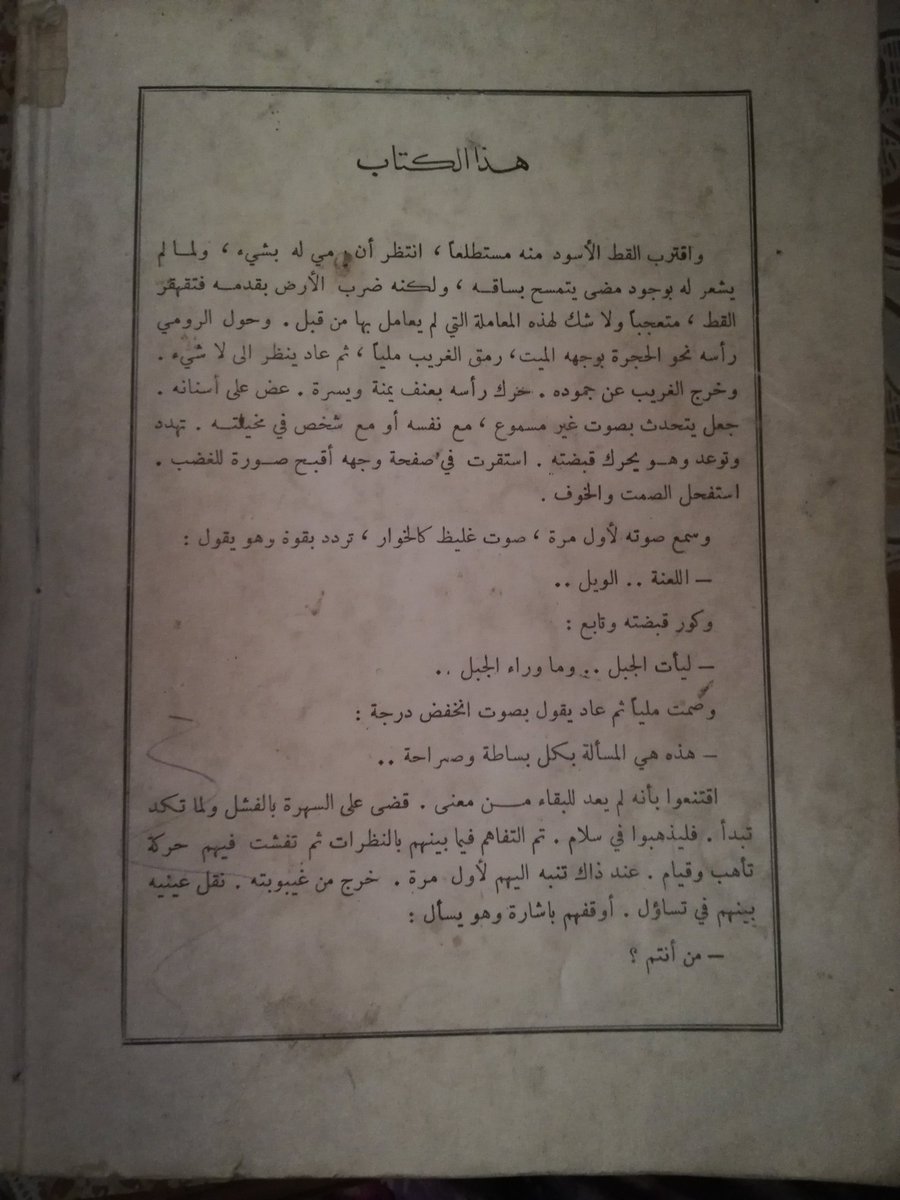 هذا الكتاب
واقترب القط الأسود منه مستطلعاً ، انتظر أن مي له بشيء ، ولما لم
يشعر له بوجود مضى يتمسح بساقه ، ولكنه ضرب الأرض بقدمه فتقهقر
القط ، متعجباً ولا شك لهذه المعاملة التي لم يعامل بها من قبل . وحول الرومي
رأسه نحو الحجرة بوجهه الميت، رمق الغريب ملياً ، ثم عاد ينظر الى لا شيء .
وخرج الغريب عن جموده . حرك رأسه بعنف يمنة ويسرة . عض على أسنانه .
جعل يتحدث بصوت غير مسموع ، مع نفسه أو مع شخص في مخيلته . تهدد
وتوعد وهو يحرك قبضته . استقرت في صفحة وجهه أقبح صورة للغضب .
استفحل الصمت والخوف .
وسمع صوته لأول مرة ، صوت غليظ كالخوار ، تردد بقوة وهو يقول :
– اللعنة .. الويل ..
وكور قبضته وتابع :
– ليأت الجبل .. وما وراء الجبل ..
وصمت ملياً ثم عاد يقول بصوت انخفض درجة :
– هذه هي المسألة بكل بساطة وصراحة ..
اقتنعوا بأنه لم يعد للبقاء من معنى . قضى على السهرة بالفشل ولما تكد
تبدأ . فليذهبوا في سلام . تم التفاهم فيما بينهم بالنظرات ثم تفشت فيهم حركة
تأهب وقيام . عند ذاك تنبه اليهم لأول مرة . خرج من غيبوبته . نقل عينيه
بينهم في تساؤل . أوقفهم باشارة وهو يسأل :
– من أنتم ؟